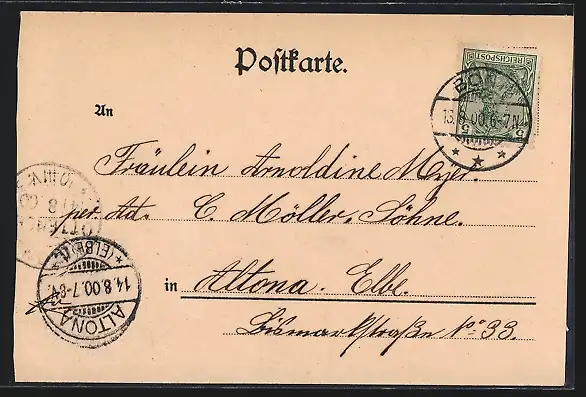 Postkarte.
REICHSPOST
5 5
BONN
13.8.00.6-7N.
An
Fräulein Arnoldine Meyer.
per. Ad. C. Möller. Söhne.
in Altona. Elbe.
Bismarkstraße No. 33.
ALTONA
14.8.00.7-8V.
(ELBE)